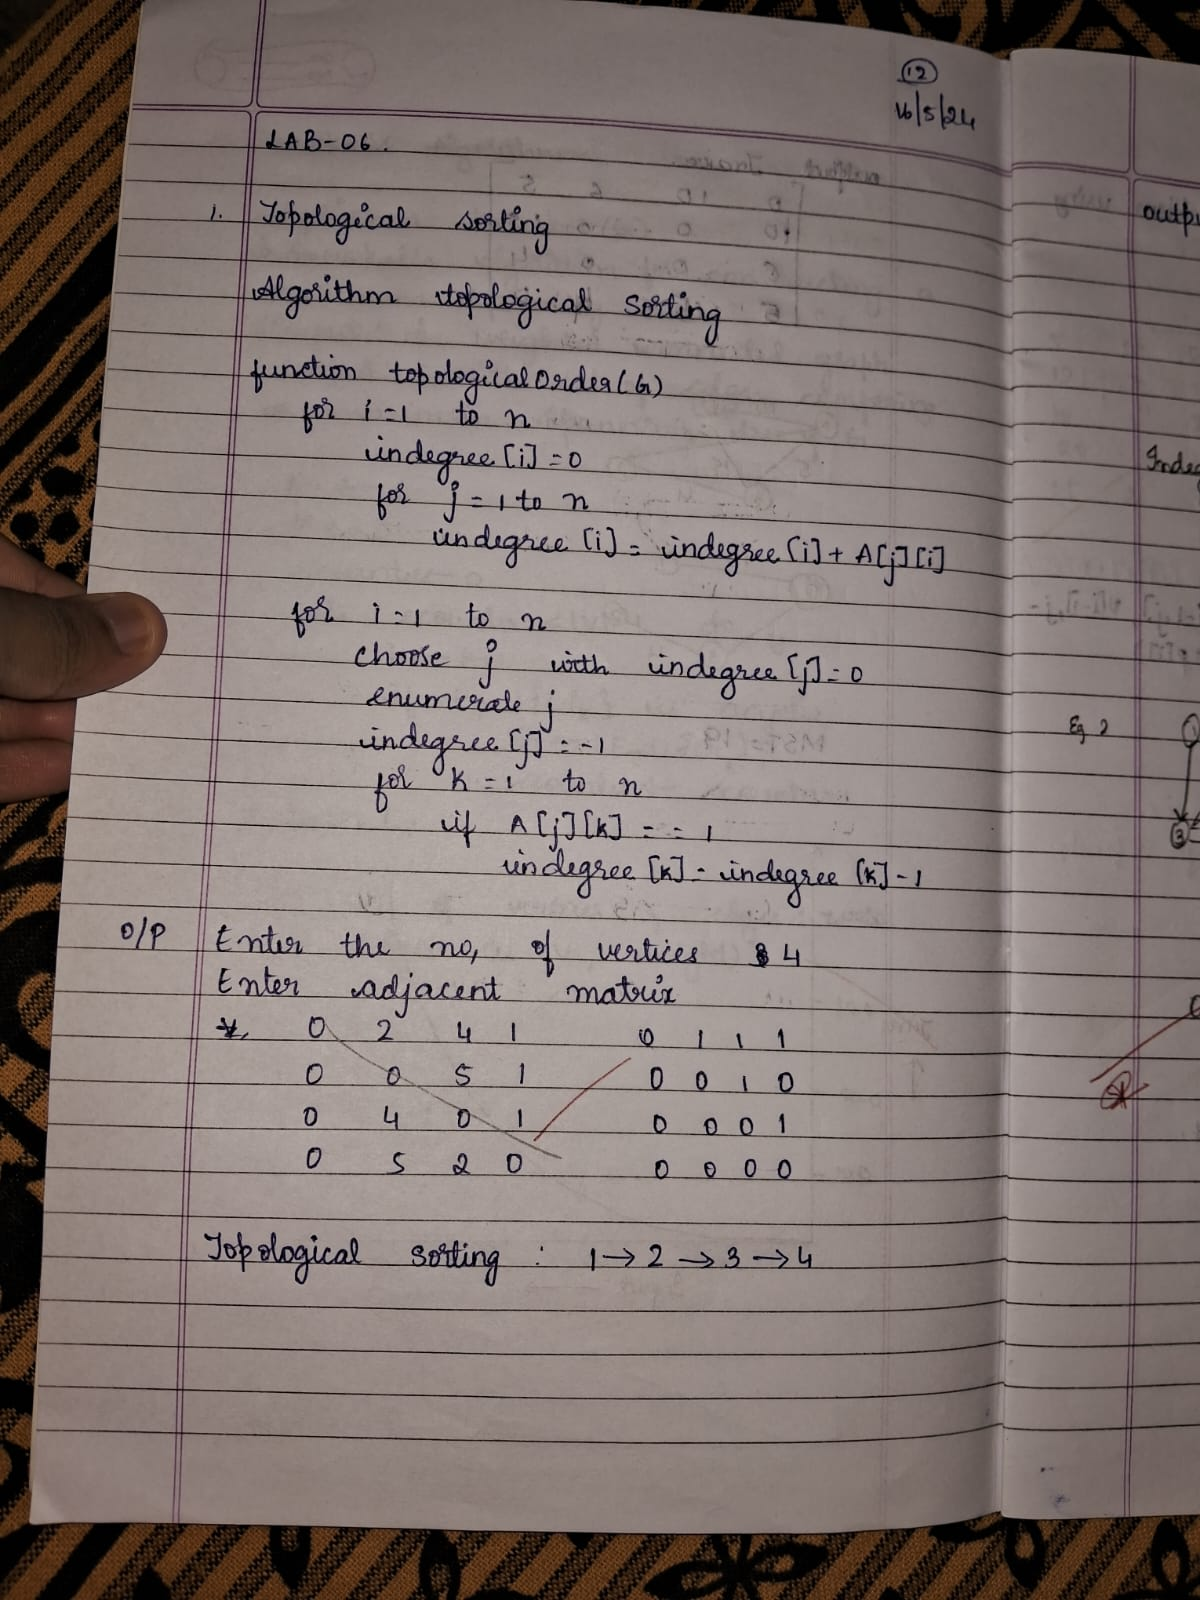 12
16/5/24
LAB-06.
1. Topological sorting
Algorithm topological Sorting
function topologicalOrder(G)
for i=1 to n
indegree[i]=0
for j=1 to n
indegree[i]= indegree[i]+A[j][i]
for i=1 to n
choose j with indegree[j]=0
enumerate j
indegree[j]=-1
for k=1 to n
if A[j][k]==1
indegree[k]=indegree[k]-1
O/P Enter the no, of vertices 4
Enter adjacent matrix
0 2 4 1 0 1 1 1
0 0 5 1 0 0 1 0
0 4 0 1 0 0 0 1
0 5 2 0 0 0 0 0
Topological sorting : 1→2→3→4
Eg 2
3